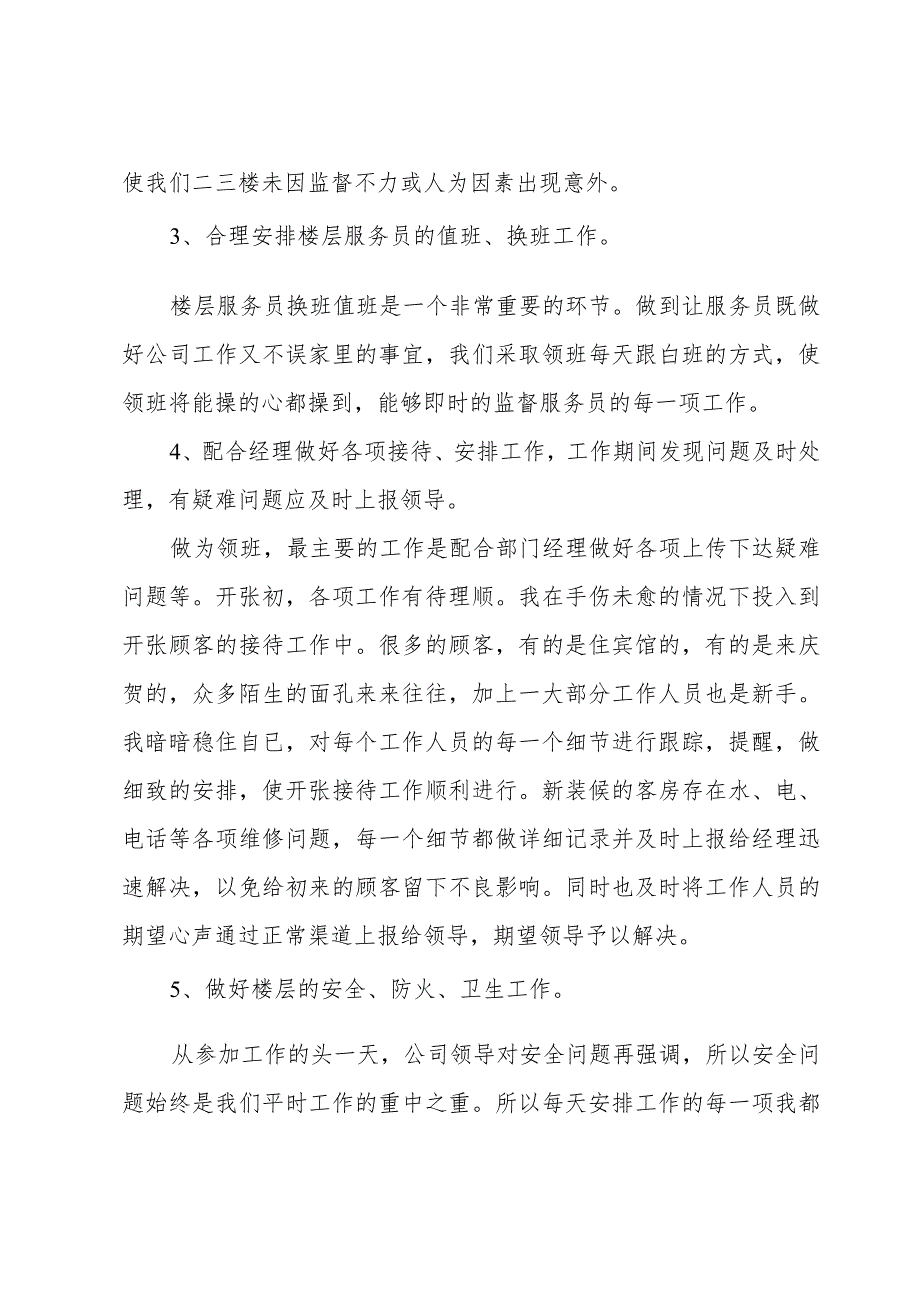 使我们二三楼未因监督不力或人为因素出现意外。
3、合理安排楼层服务员的值班、换班工作。
楼层服务员换班值班是一个非常重要的环节。做到让服务员既做
好公司工作又不误家里的事宜，我们采取领班每天跟白班的方式，使
领班将能操的心都操到，能够即时的监督服务员的每一项工作。
4、配合经理做好各项接待、安排工作，工作期间发现问题及时处
理，有疑难问题应及时上报领导。
做为领班，最主要的工作是配合部门经理做好各项上传下达疑难
问题等。开张初，各项工作有待理顺。我在手伤未愈的情况下投入到
开张顾客的接待工作中。很多的顾客，有的是住宾馆的，有的是来庆
贺的，众多陌生的面孔来来往往，加上一大部分工作人员也是新手。
我暗暗稳住自已，对每个工作人员的每一个细节进行跟踪，提醒，做
细致的安排，使开张接待工作顺利进行。新装候的客房存在水、电、
电话等各项维修问题，每一个细节都做详细记录并及时上报给经理迅
速解决，以免给初来的顾客留下不良影响。同时也及时将工作人员的
期望心声通过正常渠道上报给领导，期望领导予以解决。
5、做好楼层的安全、防火、卫生工作。
从参加工作的头一天，公司领导对安全问题再强调，所以安全问
题始终是我们平时工作的重中之重。所以每天安排工作的每一项我都